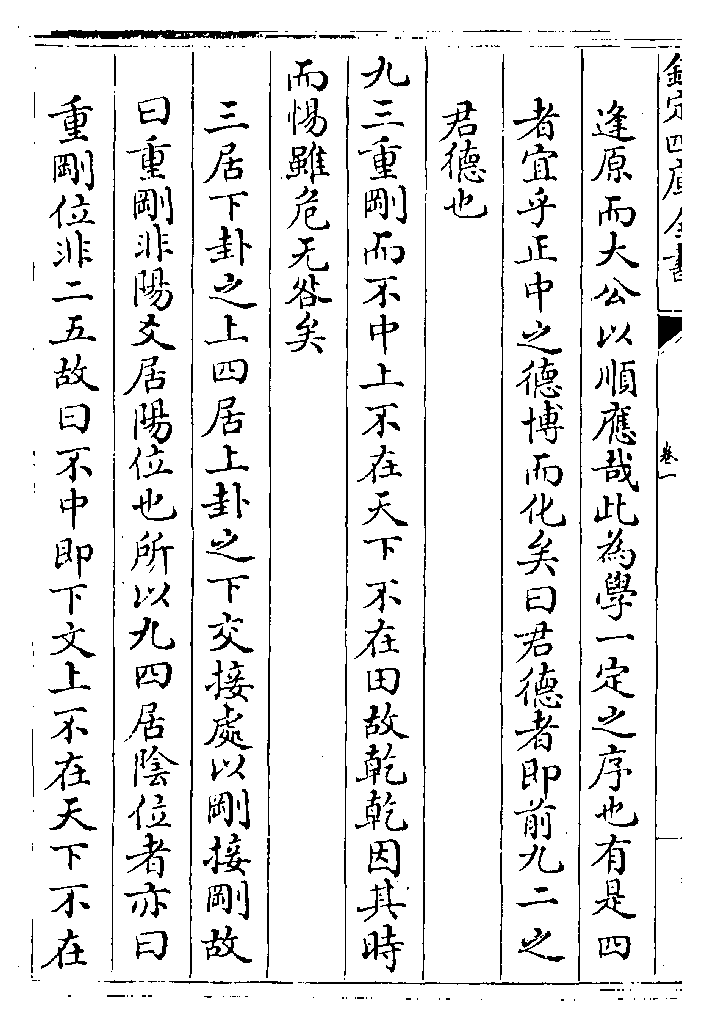 欽定四庫全書
卷一
逢原而大公以順應哉此為學一定之序也有是四
者宜乎正中之德博而化矣曰君德者即前九二之
君德也
九三重剛而不中上不在天下不在田故乾乾因其時
而惕雖危无咎矣
三居下卦之上四居上卦之下交接處以剛接剛故
曰重剛非陽爻居陽位也所以九四居陰位者亦曰
重剛位非二五故曰不中即下文上不在天下不在